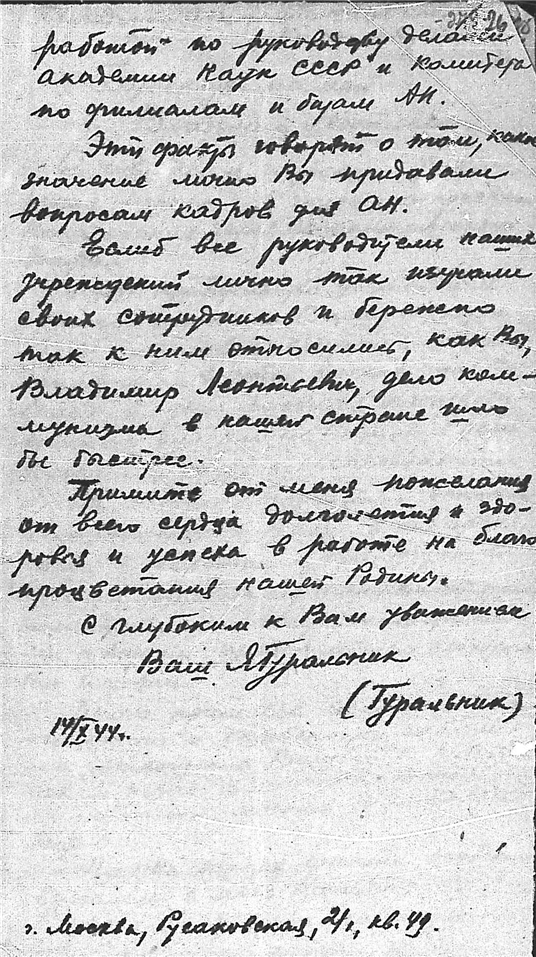 26
работой по руководству делами
академии Наук СССР и Комитета
по филиалам и базам АН.
Эти факты говорят о том, какое
значение лично Вы придавали
вопросам кадров для АН.
Еслиб все руководители наших
учреждений лично так изучали
своих сотрудников и бережно
так к ним относились, как Вы,
Владимир Леонтьевич, дело ком-
мунизма в нашей стране шло
бы быстрее.
Примите от меня пожелания
от всего сердца долголетия и здо-
ровья и успеха в работе на благо
процветания нашей Родины.
С глубоким к Вам уважением
Ваш ЯГуральник
(Гуральник)
14/X 44г.
г. Москва, Русаковская, 2/1, кв. 49.